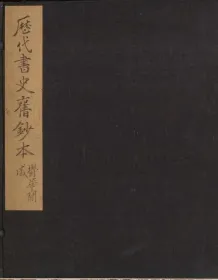 歷代書史舊鈔本